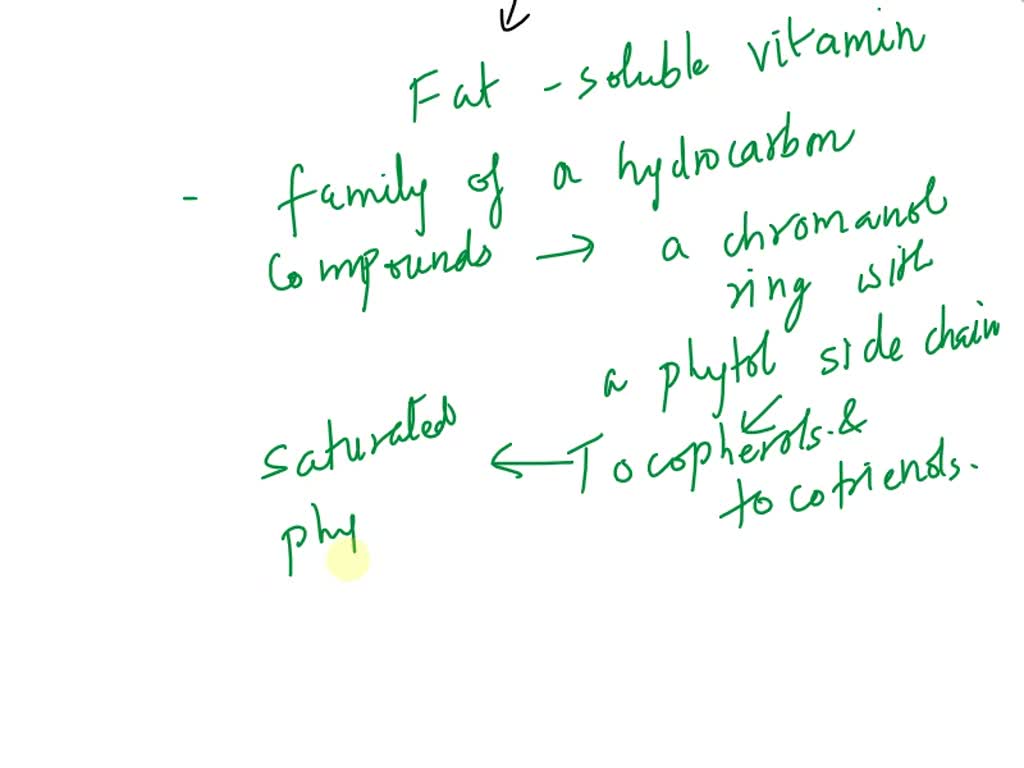 Fat - soluble vitamin
- family of a hydrocarbon
Compounds → a chromanol
ring with
a phytol side chain
saturated ← Tocopherols. &
tocotriends.
phy